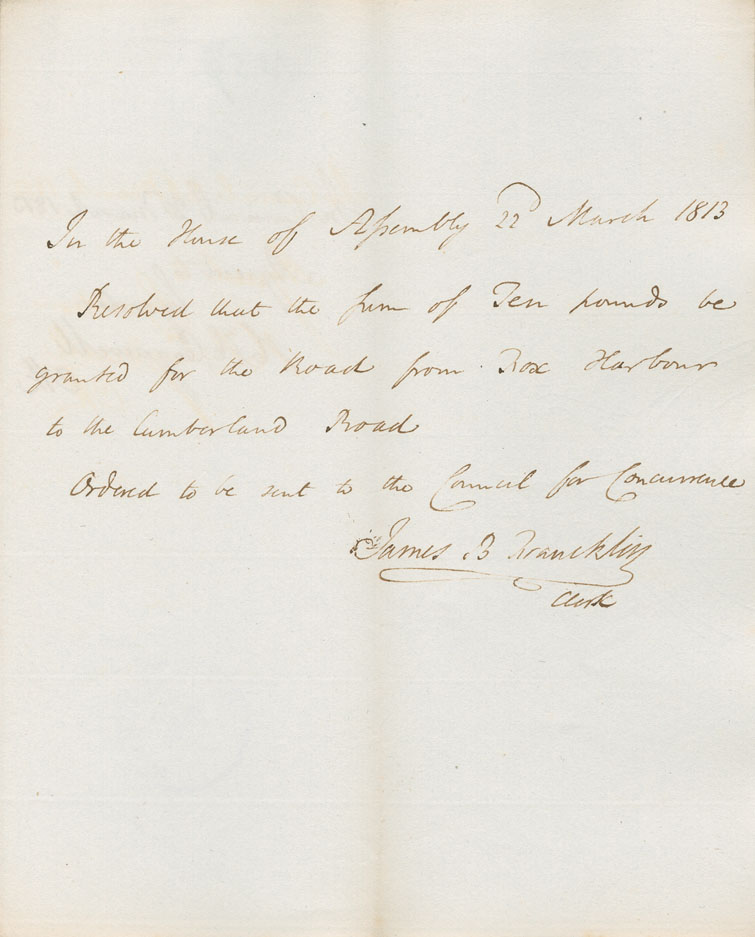 In the House of Assembly 22d March 1813
Resolved that the sum of Ten pounds be
granted for the Road from Fox Harbour
to the Cumberland Road
Ordered to be sent to the Council for Concurrence
James B Francklin
Clerk